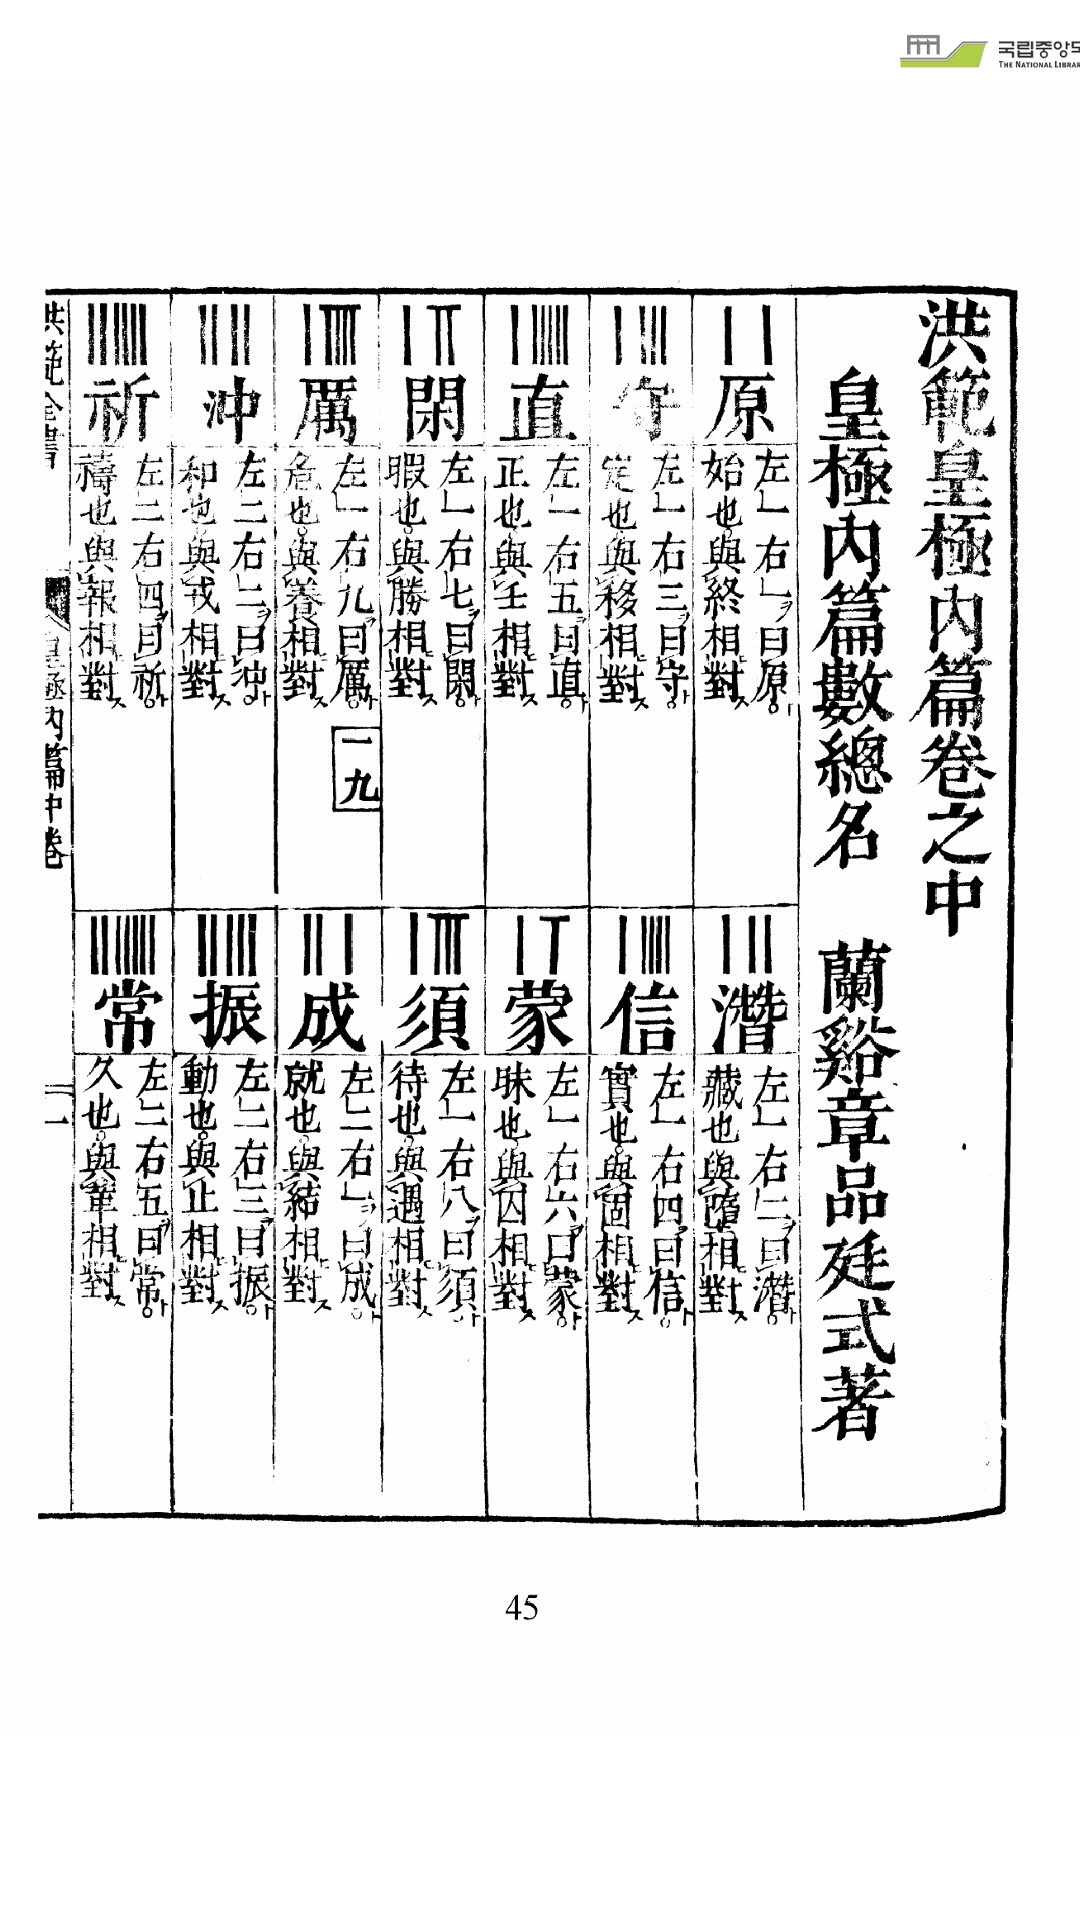 국립중앙도
THE NATIONAL LIBRAR
洪範皇極內篇卷之中
皇極內篇數總名 蘭谿章品廷式著
原
左一右一曰原
始也與終相對
潛
左一右二曰潛
藏也與墮相對
守
左一右三曰守
定也與移相對
信
左一右四曰信
實也與固相對
直
左一右五曰直
正也與壬相對
蒙
左一右六曰蒙
昧也與囚相對
閑
左一右七曰閑
暇也與勝相對
須
左一右八曰須
待也與遇相對
厲
左一右九曰厲
危也與養相對
一九
成
左二右一曰成
就也與結相對
沖
左二右二曰沖
和也與戎相對
振
左二右三曰振
動也與止相對
祈
左二右四曰祈
禱也與報相對
常
左二右五曰常
久也與革相對
洪範全書 皇極內篇中卷 一
45